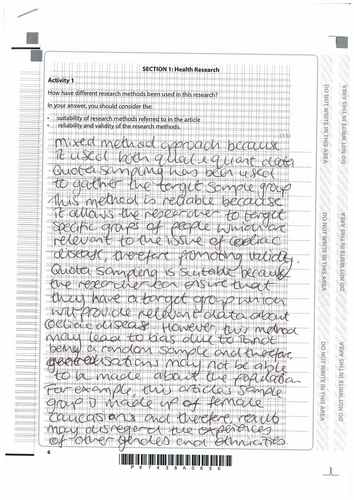 SECTION 1: Health Research
Activity 1
How have different research methods been used in this research?
In your answer, you should consider the:
• suitability of research methods referred to in the article
• reliability and validity of the research methods.
Mixed method approach because
it used both qual & quant data
Quota sampling has been used
to gather the target sample group
This method is reliable because
it allows the researcher to target
specific groups of people which are
relevant to the issue of coeliac
disease, therefore promoting validity.
Quota sampling is suitable because
the researcher can ensure that
they have a target group which
will provide relevant data about
coeliac disease. However this method
may lead to bias due to it not
being a random sample and therefore
generalisations may not be able
to be made about the population
For example this articles sample
group is made up of female
caucasians and therefore results
may disregard the experiences
of other genders and ethnicities.
6
P67438A0656
DO NOT WRITE IN THIS AREA
DO NOT WRITE IN THIS AREA
DO NOT WRITE IN THIS AREA
DO NOT WRITE IN THIS AREA
DO NOT WRITE IN THIS AREA
DO NOT WRITE IN THIS AREA